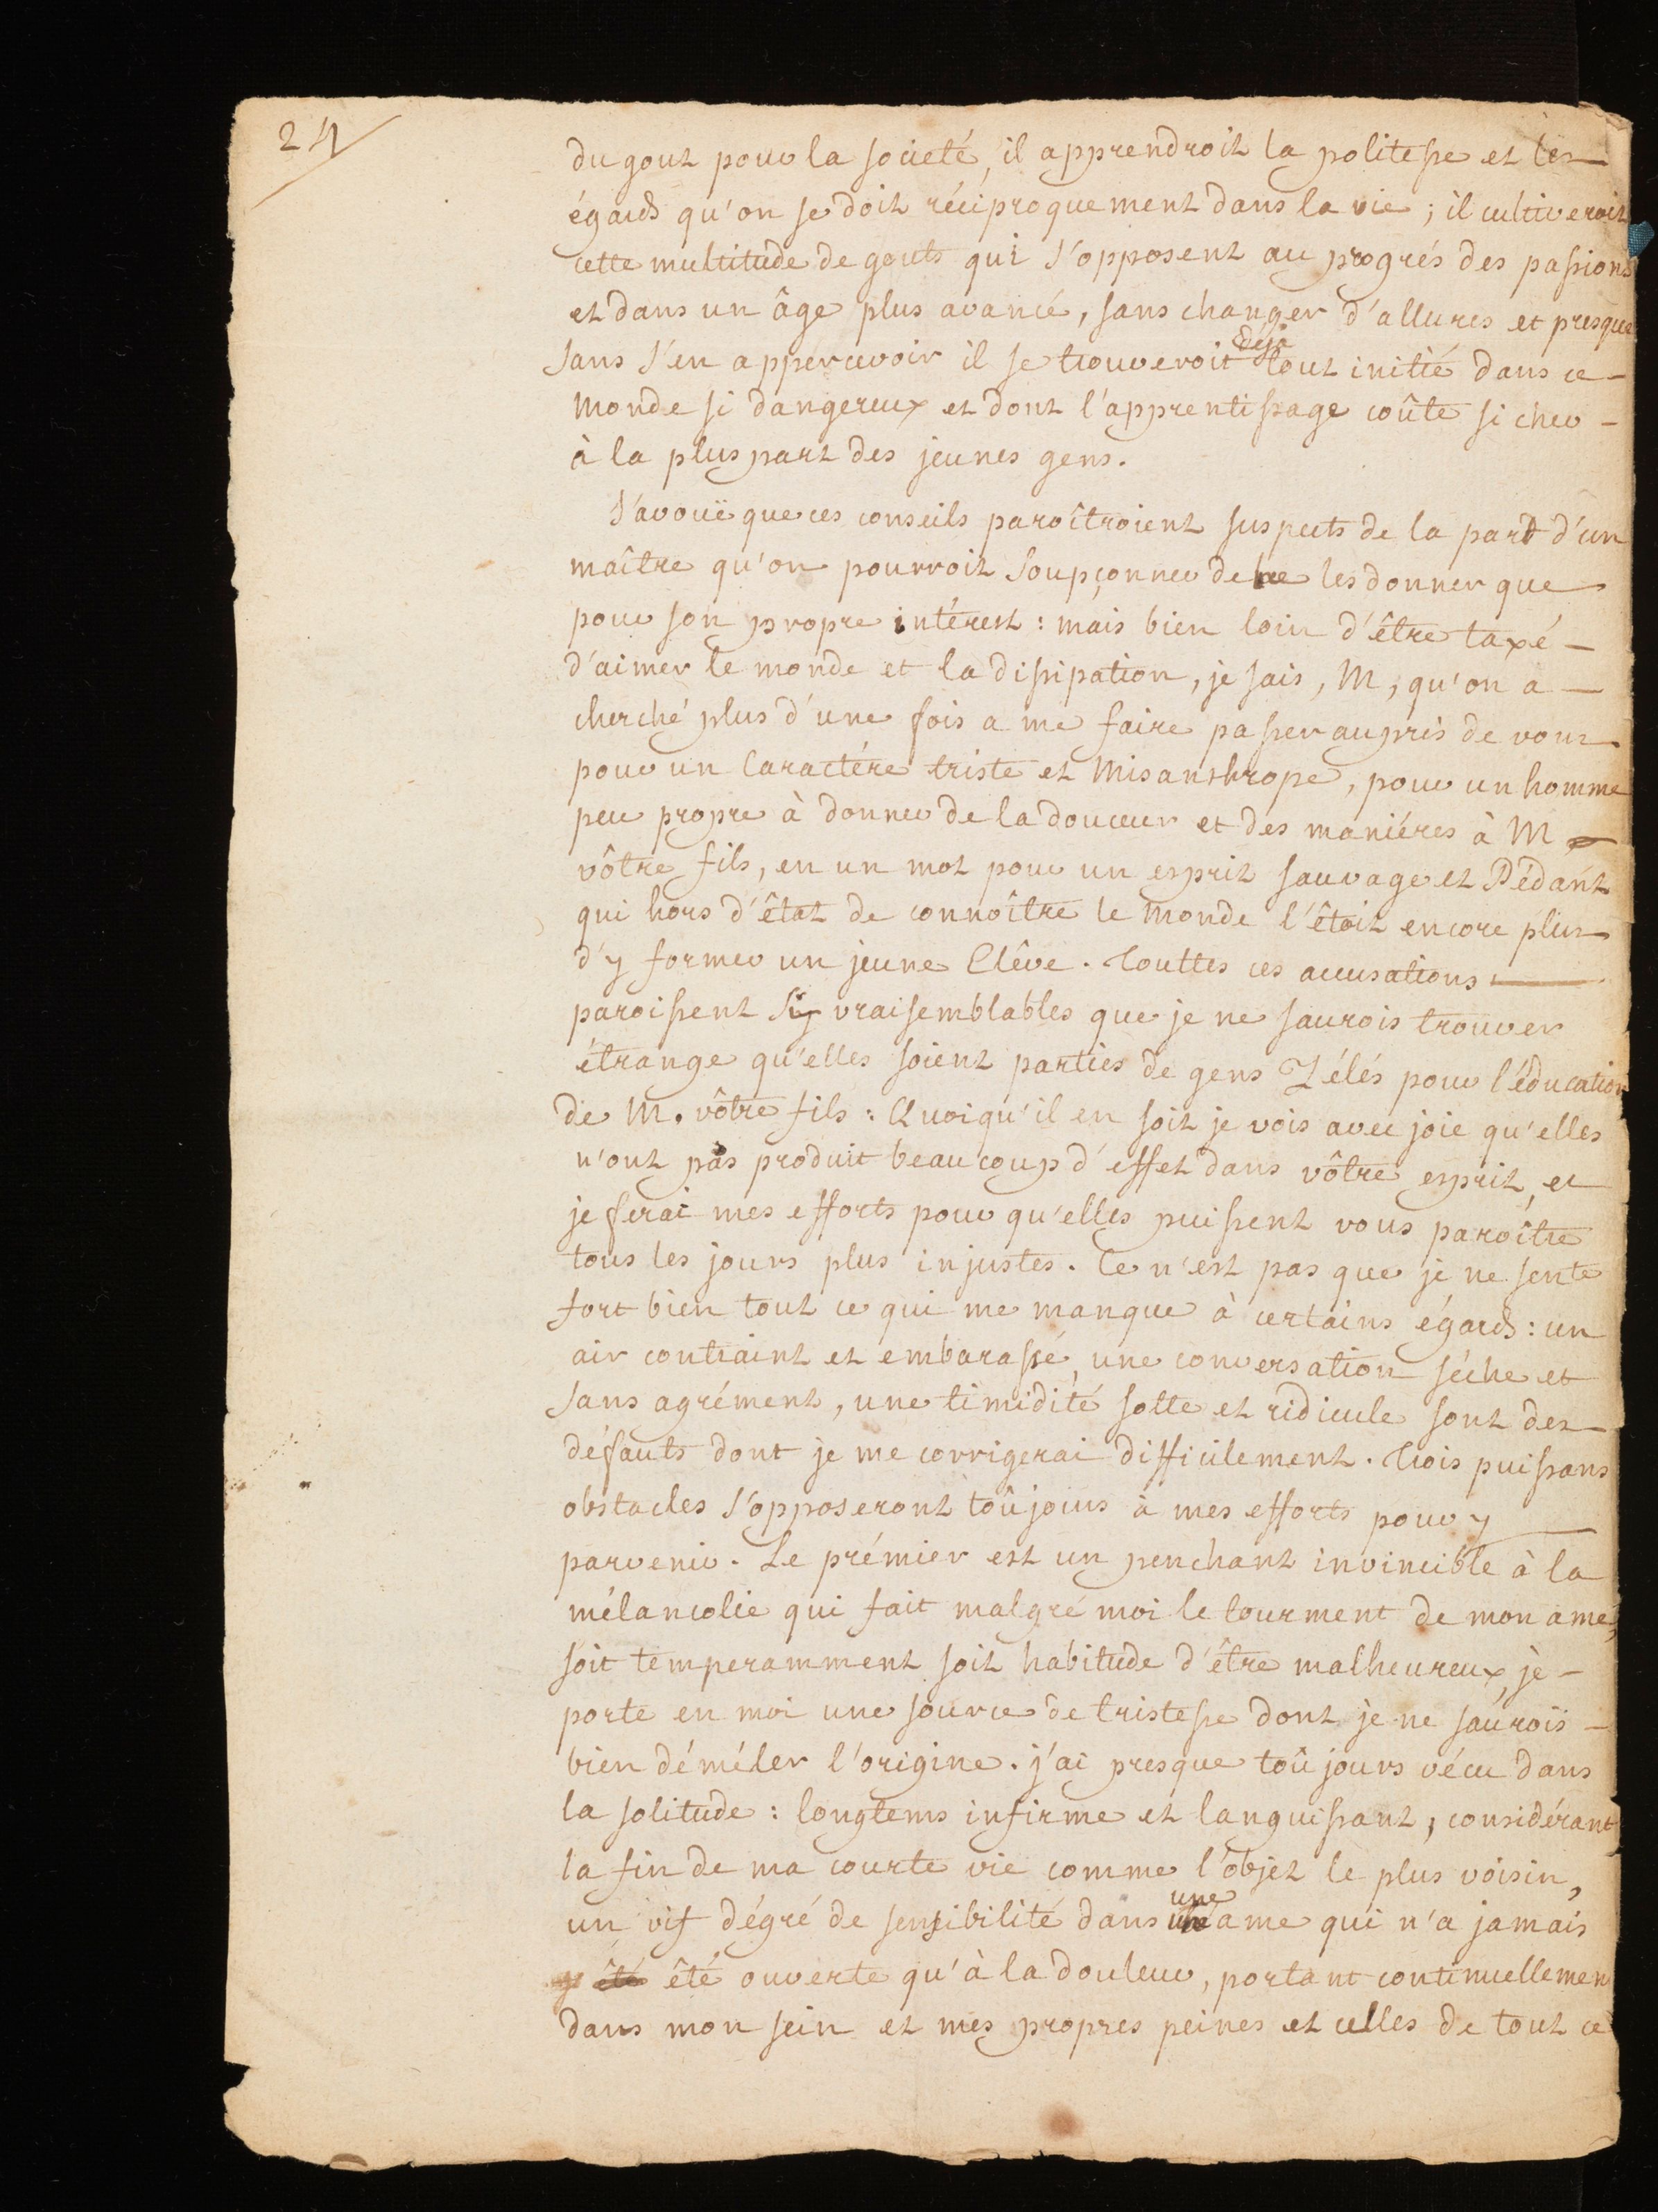 24
du gout pour la societé, il apprendroit la politesse et les
égards qu'on se doit réciproquement dans la vie ; il cultiveroit
cette multitude de gouts qui s'opposent au progrés des passions
et dans un âge plus avancé, sans changer d'allures et presque
déja
sans s'en appercevoir il se trouveroit tout initié dans ce
monde si dangereux et dont l'apprentissage coûte si cher
à la plus part des jeunes gens.
J'avouë que ces conseils paroîtroient suspects de la part d'un
maître qu'on pourroit soupçonner de ne les donner que
pour son propre intérest : mais bien loin d'être taxé
d'aimer le monde et la dissipation, je sais, M, qu'on a
cherché plus d'une fois a me faire passer auprès de vous
pour un Caractére triste et Misanthrope, pour un homme
peu propre à donner de la douceur et des maniéres à M
vôtre fils, en un mot pour un esprit sauvage et Pédant
qui hors d'êtat de connoître le monde l'êtoit encore plus
d'y former un jeune Elêve. Touttes ces accusations
paroissent si vraisemblables que je ne saurois trouver
étrange qu'elles soient parties de gens Zélés pour l'éducation
de M. vôtre fils : Quoiqu'il en soit je vois avec joie qu'elles
n'ont pas produit beaucoup d'effet dans vôtre esprit, et
je ferai mes efforts pour qu'elles puissent vous paroître
tous les jours plus injustes. Ce n'est pas que je ne sente
fort bien tout ce qui me manque à certains égards : un
air contraint et embarassé, une conversation séche et
sans agrément, une timidité sotte et ridicule sont des
défauts dont je me corrigerai difficilement. Trois puissans
obstacles s'opposeront toûjours à mes efforts pour y
parvenir. Le prémier est un penchant invincible à la
mélancolie qui fait malgré moi le tourment de mon ame,
soit temperamment soit habitude d'être malheureux, je
porte en moi une source de tristesse dont je ne saurois
bien déméler l'origine. j'ai presque toûjours vécu dans
la solitude : longtems infirme et languissant, considérant
la fin de ma courte vie comme l'objet le plus voisin,
une
un vif dégré de sensibilité dans une ame qui n'a jamais
y êté êté ouverte qu'à la douleur, portant continuellemen
dans mon sein et mes propres peines et celles de tout ce